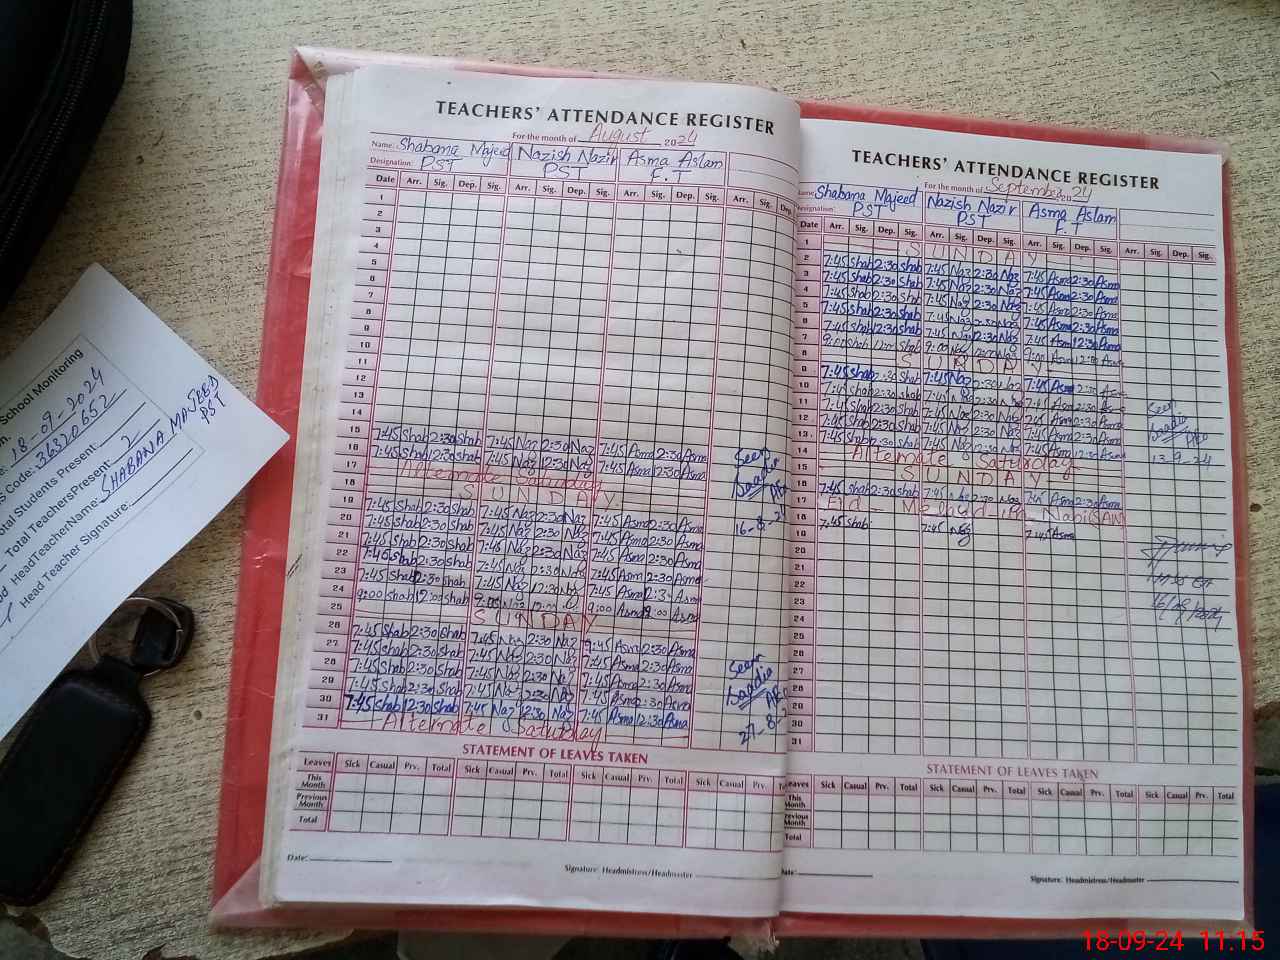 School Monitoring
18-09-2024
S Code: 36320652
Total Students Present:
Total TeachersPresent: 2
HeadTeacherName: SHABANA MAJEED
PST
Head Teacher Signature:
TEACHERS' ATTENDANCE REGISTER
For the month of August 2024
Name: Shabana Majeed Nazish Nazir Asma Aslam
Designation: PST PST F.T
Date Arr. Sig. Dep. Sig. Arr. Sig. Dep. Sig. Arr. Sig. Dep. Sig. Arr. Sig. Dep.
1
2
3
4
5
6
7
8
9
10
11
12
13
14
15 7:45 Shab 2:30 shab 7:45 Naz 2:30 Naz 7:45 Asma 2:30 Asma
16 7:45 Shab 12:30 shab 7:45 Naz 12:30 Naz 7:45 Asma 12:30 Asma
17 Alternate Saturday
18 SUNDAY
19 7:45 Shab 2:30 shab 7:45 Naz 2:30 Naz 7:45 Asma 2:30 Asma
20 7:45 Shab 2:30 shab 7:45 Naz 2:30 Naz 7:45 Asma 2:30 Asma
21 7:45 Shab 2:30 shab 7:45 Naz 2:30 Naz 7:45 Asma 2:30 Asma
22 7:45 shab 2:30 shab 7:45 Naz 2:30 Naz 7:45 Asma 2:30 Asma
23 7:45 Shab 12:30 shab 7:45 Naz 12:30 Naz 7:45 Asma
24 9:00 Shab 12:00 shab 9:00 Naz 12:00 9:00 Asma 12:00 Asma
25 SUNDAY
26 7:45 Shab 2:30 shab 7:45 Naz 2:30 Naz 7:45 Asma 2:30 Asma
27 7:45 Shab 2:30 Shab 7:45 Naz 2:30 Naz 7:45 Asma 2:30 Asma
28 7:45 Shab 2:30 Shab 7:45 Naz 2:30 Naz 7:45 Asma 2:30 Asma
29 7:45 Shab 2:30 Shab 7:45 Naz 2:30 Naz 7:45 Asma 2:30 Asma
30 7:45 shab 12:30 shab 7:45 Naz 12:30 Naz 7:45 Asma 12:30 Asma
31 Alternate Saturday
Seen
Saadia
16-8-24
Seen
Saadia
27-8-2
STATEMENT OF LEAVES TAKEN
Leaves Sick Casual Prv. Total Sick Casual Prv. Total Sick Casual Prv. Total Sick Casual Prv.
This Month
Previous Month
Total
Date:
Signature: Headmistress/Headmaster
TEACHERS' ATTENDANCE REGISTER
For the month of September 2024
Name: Shabana Majeed Nazish Nazir Asma Aslam
Designation: PST PST F.T
Date Arr. Sig. Dep. Sig. Arr. Sig. Dep. Sig. Arr. Sig. Dep. Sig. Arr. Sig. Dep. Sig.
1 SUNDAY
2 7:45 Shab 2:30 shab 7:45 Naz 2:30 Naz 7:45 Asma 2:30 Asma
3 7:45 Shab 2:30 Shab 7:45 Naz 2:30 Naz 7:45 Asma 2:30 Asma
4 7:45 Shab 2:30 Shab 7:45 Naz 2:30 Naz 7:45 Asma 2:30 Asma
5 7:45 Shab 2:30 Shab 7:45 Naz 2:30 Naz 7:45 Asma 2:30 Asma
6 7:45 Shab 12:30 shab 7:45 Naz 12:30 Naz 7:45 Asma 12:30 Asma
7 9:00 shab 12:00 Shab 9:00 Naz 12:00 Naz 9:00 Asma 12:00 Asma
8 SUNDAY
9 7:45 shab 2:30 Shab 7:45 Naz 2:30 Naz 7:45 Asma 2:30 Asma
10 7:45 Shab 2:30 shab 7:45 Naz 2:30 Naz 7:45 Asma 2:30 Asma
11 7:45 Shab 2:30 shab 7:45 Naz 2:30 Naz 7:45 Asma 2:30 Asma
12 7:45 Shab 2:30 shab 7:45 Naz 2:30 Naz 7:45 Asma 2:30 Asma
13 7:45 Shab 12:30 shab 7:45 Naz 12:30 Naz 7:45 Asma 12:30 Asma
14 Alternate Saturday
15 SUNDAY
16 7:45 shab 2:30 shab 7:45 Naz 2:30 Naz 7:45 Asma 2:30 Asma
17 Eid - Melaud-un-Nabi
18 7:45 shab 7:45 Naz 7:45 Asma
19
20
21
22
23
24
25
26
27
28
29
30
31
Seen
Saadia
13-9-24
STATEMENT OF LEAVES TAKEN
Leaves Sick Casual Prv. Total Sick Casual Prv. Total Sick Casual Prv. Total Sick Casual Prv. Total
This Month
Previous Month
Total
Date:
Signature: Headmistress/Headmaster
18-09-24 11.15